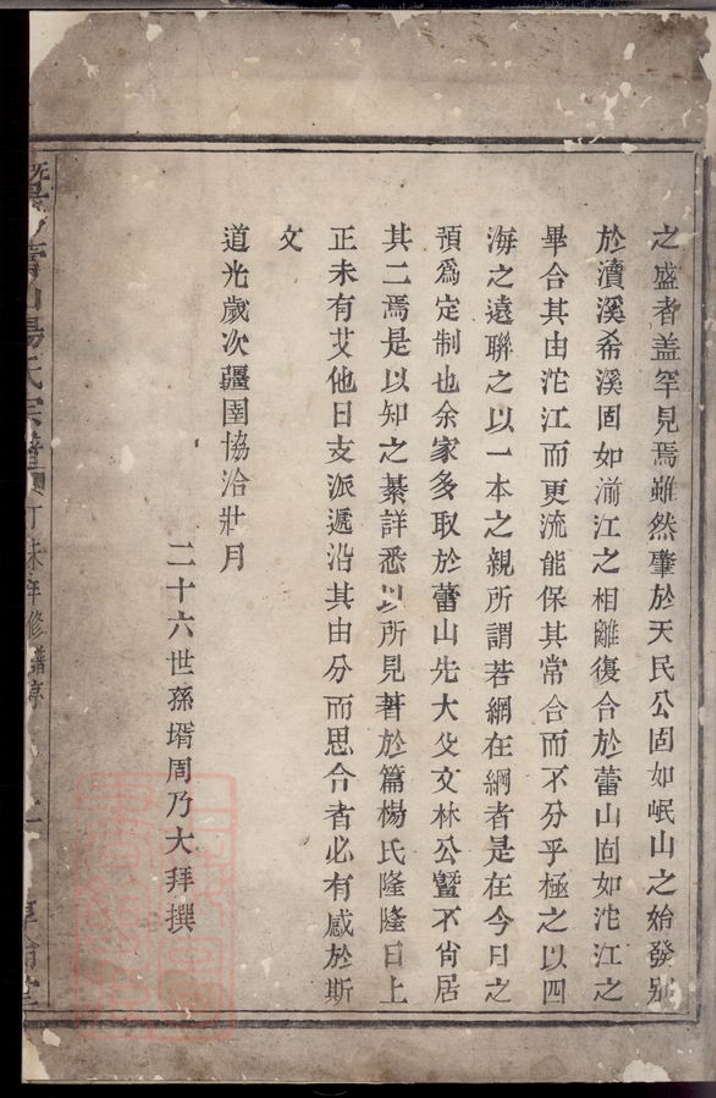 之盛者盖罕見焉雖然肇於天民公固如岷山之始發別
於瀆溪希溪固如湔江之相離復合於蕾山固如沱江之
畢合其由沱江而更流能保其常合而不分乎極之以四
海之遠聯之以一本之親所謂若網在綱者是在今日之
預爲定制也余家多取於蕾山先大父文林公曁不肖居
其二焉是以知之綦詳悉以所見著於篇楊氏隆隆日上
正未有艾他日支派遞沿其由分而思合者必有感於斯
文
道光歲次疆圉協洽壯月
二十六世孫壻周乃大拜撰
山楊氏宗譜
丁未年修
譜序